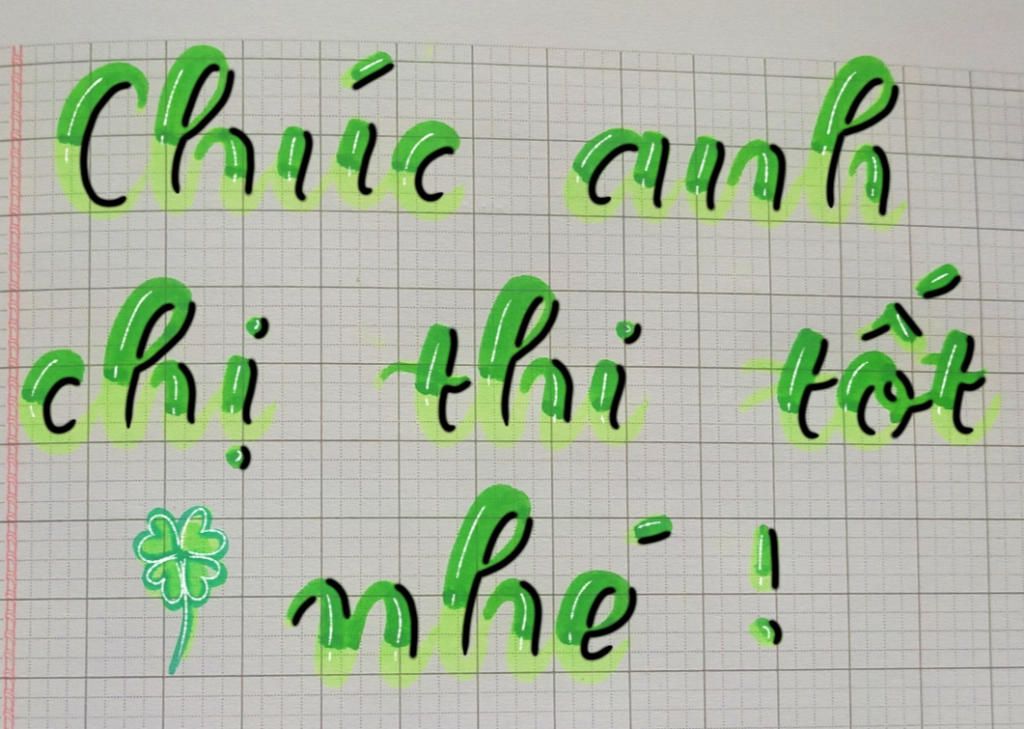 Chúc anh
chị thi tốt
nhé !